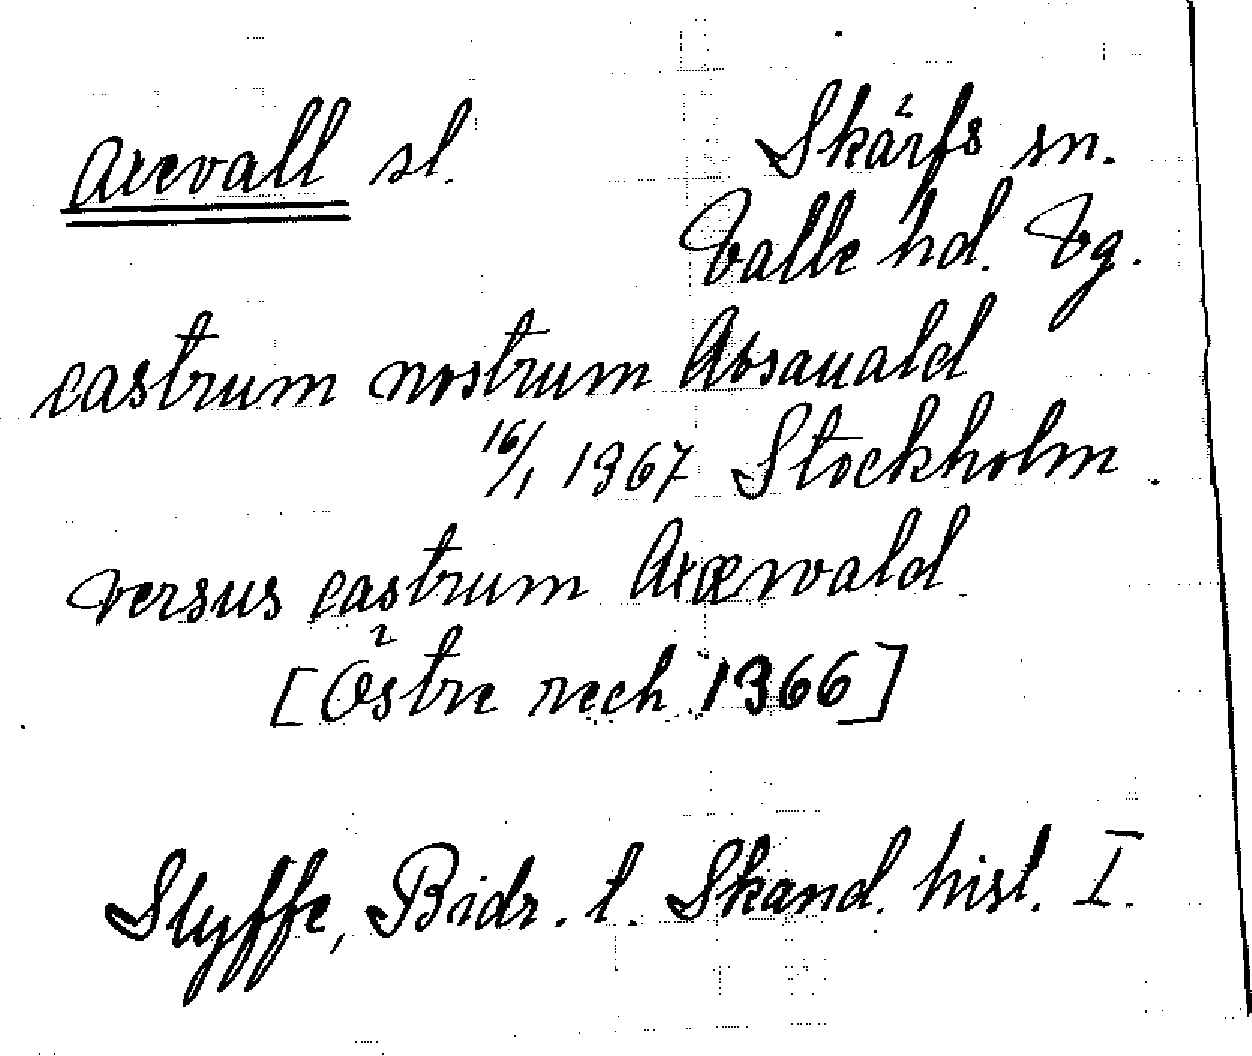 Axevall sl. Skärfs sn.
Valle hd. Vg.
castrum nostrum Absauald
16/1 1367 Stockholm.
versus castrum Axæwald
[Östre rech 1366]
Styffe, Bidr. t. Skand. hist. I.